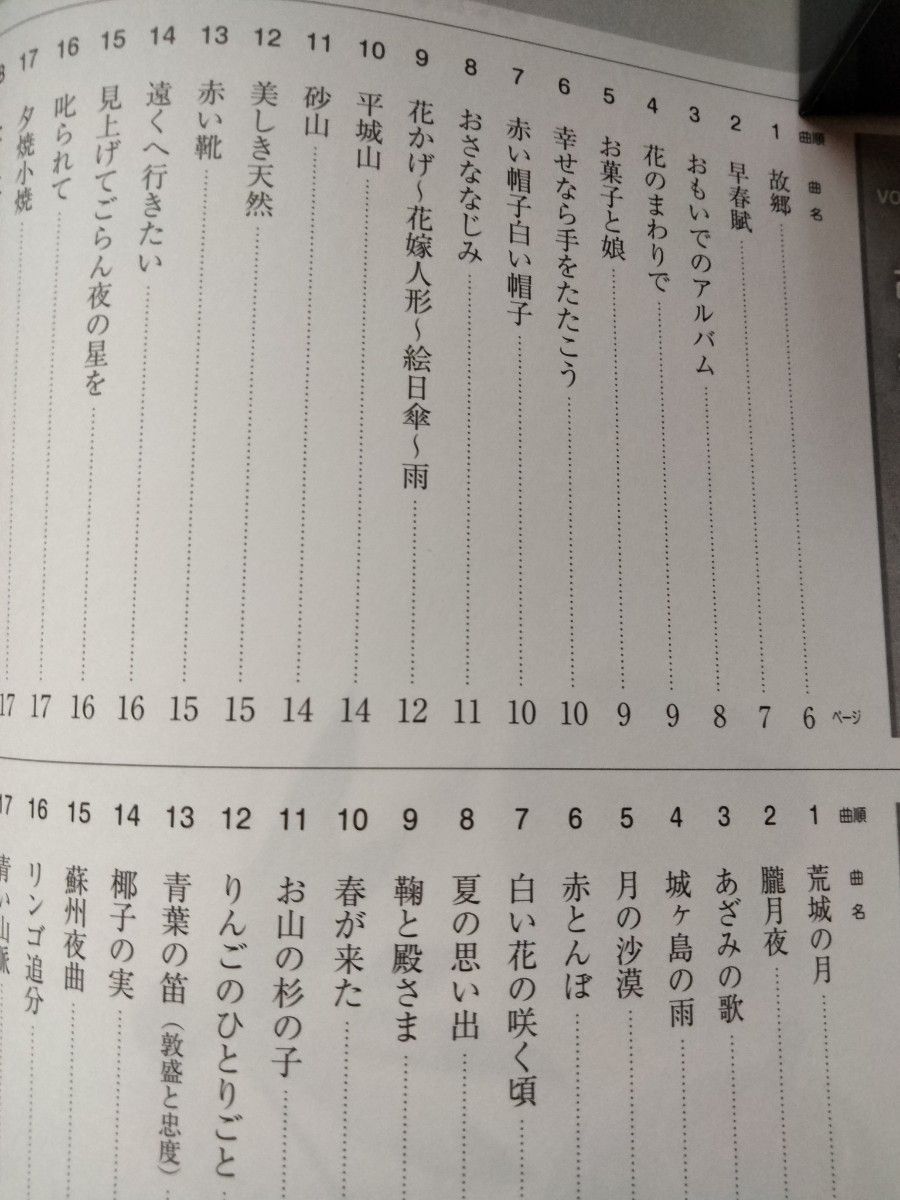 曲順 曲名 ページ
1 故郷 6
2 早春賦 7
3 おもいでのアルバム 8
4 花のまわりで 9
5 お菓子と娘 9
6 幸せなら手をたたこう 10
7 赤い帽子白い帽子 10
8 おさななじみ 11
9 花かげ〜花嫁人形〜絵日傘〜雨 12
10 平城山 14
11 砂山 14
12 美しき天然 15
13 赤い靴 15
14 遠くへ行きたい 16
15 見上げてごらん夜の星を 16
16 叱られて 17
17 夕焼小焼 17
曲順 曲名
1 荒城の月
2 朧月夜
3 あざみの歌
4 城ヶ島の雨
5 月の沙漠
6 赤とんぼ
7 白い花の咲く頃
8 夏の思い出
9 鞠と殿さま
10 春が来た
11 お山の杉の子
12 りんごのひとりごと
13 青葉の笛（敦盛と忠度）
14 椰子の実
15 蘇州夜曲
16 リンゴ追分
17 青い山脈